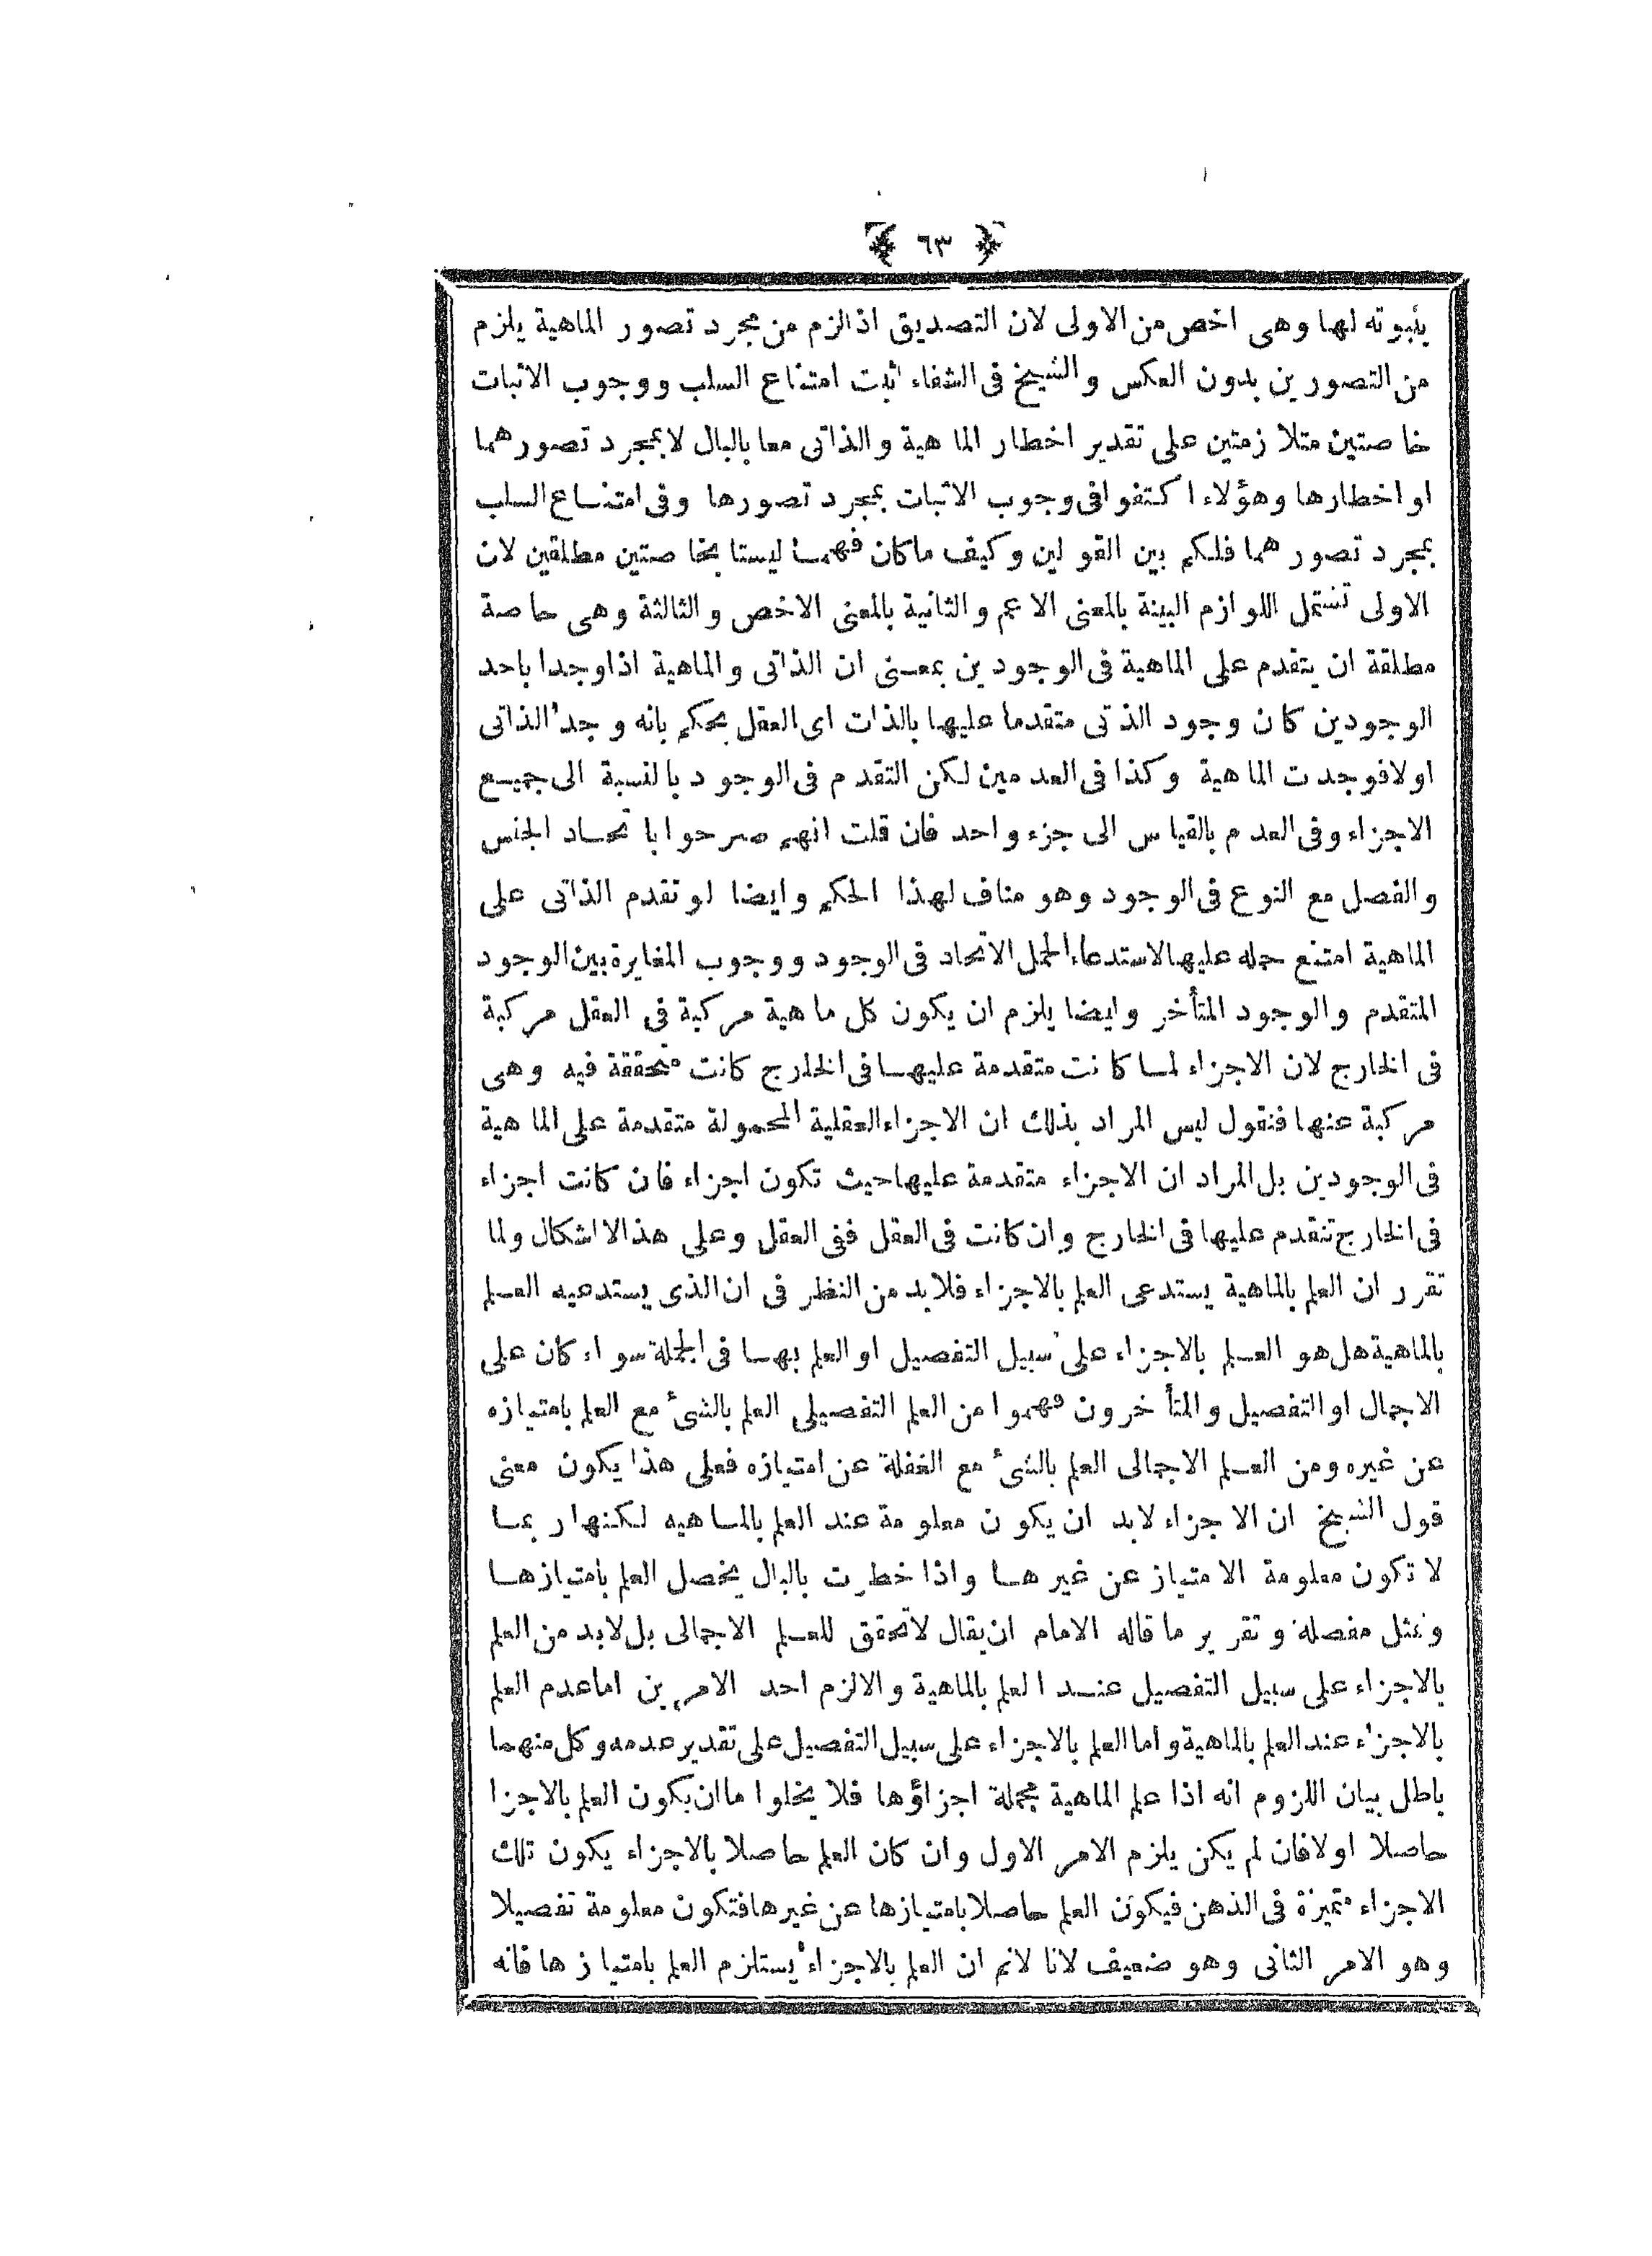 ﴿ ٦٣ ﴾
بثبوته لها وهى اخص من الاولى لان التصديق اذالزم من مجرد تصور الماهية يلزم
من التصورين بدون العكس والشيخ فى الشفاء اثبت امتناع السلب ووجوب الاثبات
خاصتين متلازمتين على تقدير اخطار الماهية والذاتى معا بالبال لابمجرد تصورهما
او اخطارها وهؤلاء اكتفوا فى وجوب الاثبات بمجرد تصورها وفى امتناع السلب
بمجرد تصورهما فلكم بين القولين وكيف ماكان فهما ليستا بخاصتين مطلقتين لان
الاولى تشتمل اللوازم البينة بالمعنى الاعم والثانية بالمعنى الاخص والثالثة وهى خاصة
مطلقة ان يتقدم على الماهية فى الوجودين بمعنى ان الذاتى والماهية اذا وجدا باحد
الوجودين كان وجود الذتى متقدما عليها بالذات اى العقل يحكم بانه وجد الذاتى
اولا فوجدت الماهية وكذا فى العدمين لكن التقدم فى الوجود بالنسبة الى جميع
الاجزاء وفى العدم بالقياس الى جزء واحد فان قلت انهم صرحوا باتحاد الجنس
والفصل مع النوع فى الوجود وهو مناف لهذا الحكم وايضا لو تقدم الذاتى على
الماهية امتنع حمله عليها لاستدعاء الحمل الاتحاد فى الوجود ووجوب المغايرة بين الوجود
المتقدم والوجود المتأخر وايضا يلزم ان يكون كل ماهية مركبة فى العقل مركبة
فى الخارج لان الاجزاء لما كانت متقدمة عليها فى الخارج كانت متحققة فيه وهى
مركبة عنها فنقول ليس المراد بذلك ان الاجزاء العقلية المحمولة متقدمة على الماهية
فى الوجودين بل المراد ان الاجزاء متقدمة عليها حيث تكون اجزاء فان كانت اجزاء
فى الخارج تتقدم عليها فى الخارج وان كانت فى العقل ففى العقل وعلى هذا لااشكال ولما
تقرر ان العلم بالماهية يستدعى العلم بالاجزاء فلابد من النظر فى ان الذى يستدعيه العلم
بالماهية هل هو العلم بالاجزاء على سبيل التفصيل او العلم بها فى الجملة سواء كان على
الاجمال او التفصيل والمتأخرون فهموا من العلم التفصيلى العلم بالشئ مع العلم بامتيازه
عن غيره ومن العلم الاجمالى العلم بالشئ مع الغفلة عن امتيازه فعلى هذا يكون معنى
قول الشيخ ان الاجزاء لابد ان يكون معلومة عند العلم بالماهيه لكنها ربما
لا تكون معلومة الامتياز عن غيرها واذا خطرت بالبال يحصل العلم بامتيازها
وتمثل مفصلة وتقرير ما قاله الامام ان يقال لاتحقق للعلم الاجمالى بل لابد من العلم
بالاجزاء على سبيل التفصيل عند العلم بالماهية والالزم احد الامرين اما عدم العلم
بالاجزاء عند العلم بالماهية واما العلم بالاجزاء على سبيل التفصيل على تقدير عدمه وكل منهما
باطل بيان اللزوم انه اذا علم الماهية مجملة اجزاؤها فلا يخلوا ما ان يكون العلم بالاجزا
حاصلا اولا فان لم يكن يلزم الامر الاول وان كان العلم حاصلا بالاجزاء يكون تلك
الاجزاء متميزة فى الذهن فيكون العلم حاصلا بامتيازها عن غيرها فتكون معلومة تفصيلا
وهو الامر الثانى وهو ضعيف لانا لانم ان العلم بالاجزاء يستلزم العلم بامتيازها فانه